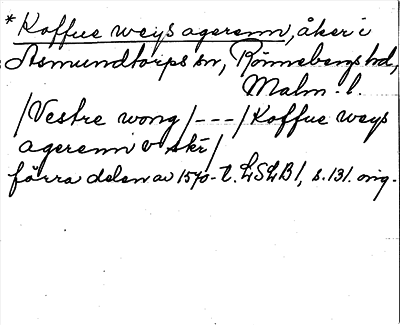 *Koffue weys agerenn, åker i
Asmundtorps sn, Rönnebergs hd,
Malm. l.
/Vestre wong/---/Koffue weys
agerenn v skr/
förra delen av 1570-t. LSLB1, s. 131. orig.